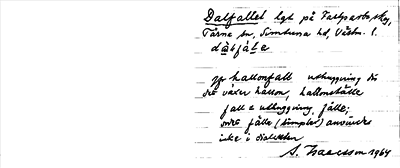 Dalfallet lgt på Fastarbosky,
Tärna sn, Simtuna hd, Västm. l.
dàlfálɛ
jfr hallonfall uthuggning där
det växer hallon, hallonställe
fall = uthuggning, fälle;
ordet fälle (simplex) användes
icke i dialekten
S. Isaacsson 1964